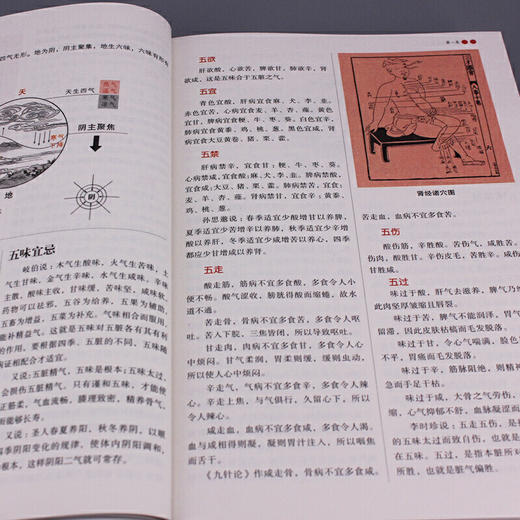 四气无形。地为阴，阴主聚集，地生六味，六味有形
天
天生四气
阴主聚焦
寒气下降
地
阴
五味宜忌
岐伯说：木气生酸味，火气生苦味，土
气生甘味，金气生辛味，水气生咸味。辛味
主散，酸味主收，甘味缓，苦味坚，咸味软
药物可以祛邪，五谷为给养，五果为辅助，
五畜为增益，五菜为补充。气味相合而服用，
能补精益气。这就是五味对五脏各有其有利
的作用。要根据四季、五脏的不同，五味随
病证相配合才适宜。
又说：五脏精气，根本是五味；五味太过，
会损伤五脏精气。只有谨和五味，才能使
正筋柔，气血流畅，腠理致密，精养骨气，
而能够长寿。
又说：圣人春夏养阳，秋冬养阴，以
季阴阳变化的规律，使体内阴阳调和，
根本，这样阴阳二气就可常存。
五欲
肝欲酸，心欲苦，脾欲甘，肺欲辛，肾
欲咸，这是五味合于五脏之气。
五宜
青色宜酸，肝病宜食麻、犬、李、韭，
赤色宜苦，心病宜食麦、羊、杏、薤。黄色
宜甘，脾病宜食粳、牛、枣、葵。白色宜辛，
肺病宜食黄黍、鸡、桃、葱。黑色宜咸，肾
病宜食大豆黄卷、猪、栗、藿。
五禁
肝病禁辛，宜食甘：粳、牛、枣、葵。
心病禁咸，宜食酸：麻、犬、李、韭。脾病禁酸，
宜食咸：大豆、猪、栗、藿。肺病禁苦，宜食苦：
麦、羊、杏、薤。肾病禁甘，宜食辛：黄黍、
鸡、桃、葱。
孙思邈说：春季适宜少酸增甘以养脾，
夏季适宜少苦增辛以养肺，秋季适宜少辛增
酸以养肝，冬季适宜少咸增苦以养心，四季
都应少甘增咸以养肾。
五走
酸走筋，筋病不宜多食酸，多食令人小
便不畅。酸气涩收，膀胱得酸而缩蜷，故水
道不通。
苦走骨，骨病不宜多食苦，多食令人呕
吐。苦入下脘，三焦皆闭，所以导致呕吐。
甘走肉，肉病不宜多食甘，多食令人心
中烦闷。甘气柔润，胃柔则缓，缓则虫动，
所以使人心中烦闷。
辛走气，气病不宜多食辛，多食令人辣
心。辛走上焦，与气俱行，久留心下，所以
令人辣心。
咸走血，血病不宜多食咸，多食令人渴。
血与咸相得则凝，凝则胃汁注入，所以咽焦
而舌干。
《九针论》作咸走骨，骨病不宜多食咸，
肾经诸穴图
苦走血，血病不宜多食苦。
五伤
酸伤筋，辛胜酸。苦伤气，咸胜苦。
伤肉，酸胜甘。辛伤皮毛，苦胜辛。咸
甘胜咸。
五过
味过于酸，肝气以津，脾气乃
此肉坚厚皱缩且唇裂。
味过于苦，脾气不能润泽，胃气
闷胀。因此皮肤枯槁而毛发脱落。
味过于甘，令心气喘满，脸色
衡。因此骨骼疼痛而毛发脱落。
味过于辛，筋脉阻绝，则精神
筋急而手足干枯。
味过于咸，大骨之气劳伤，
缩，心气抑郁不舒，血脉凝涩而
李时珍说：五走五伤，是
的五味太过而致自伤，也就是
在五味。五过，是指本脏的
所胜，也就是脏气偏胜。